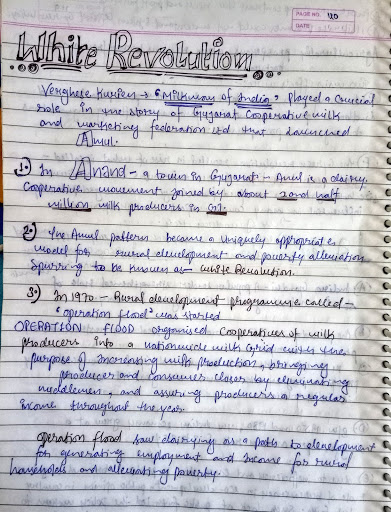 PAGE NO. 120
DATE
White Revolution
Verghese Kurien → "Milkman of India", played a Crucial
role in the story of Gujarat Cooperative milk
and marketing federation Ltd that launched
Amul.
1. In Anand - a town in Gujarat - Amul is a dairy
Cooperative movement joined by about 2 and half
million milk producers in GJ.
2. The Amul pattern became a uniquely appropriate
model for rural development and poverty alleviation
Spurring to be known as - White Revolution.
3. In 1970 - Rural development programme called -
"operation flood" was started
OPERATION FLOOD organised Cooperatives of milk
producers into a nationwide milk Grid with the
purpose of increasing milk production, bringing
producer and consumer closer by eliminating
middlemen, and assuring producers a regular
income throughout the year.
Operation flood saw dairying as a path to development
for generating employment and Income for rural
households and alleviating poverty.